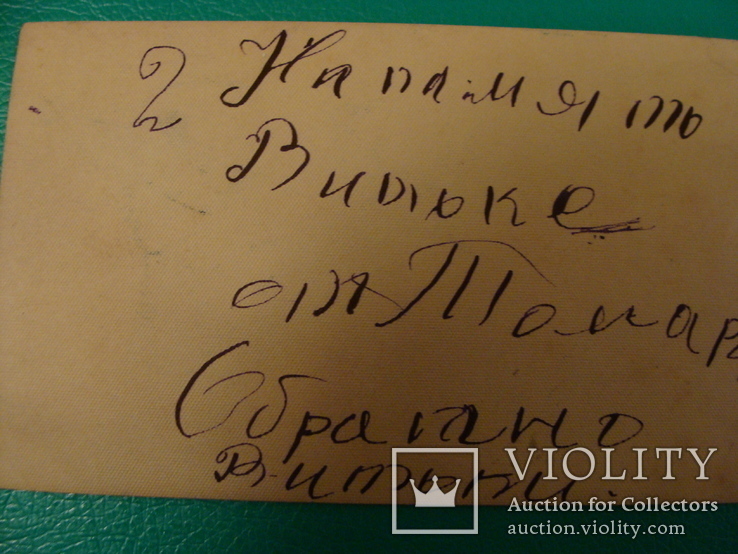 2 На память
Витьке
от Тамар
Обратно
Витьки.
VIOLITY
Auction for Collectors
auction.violity.com